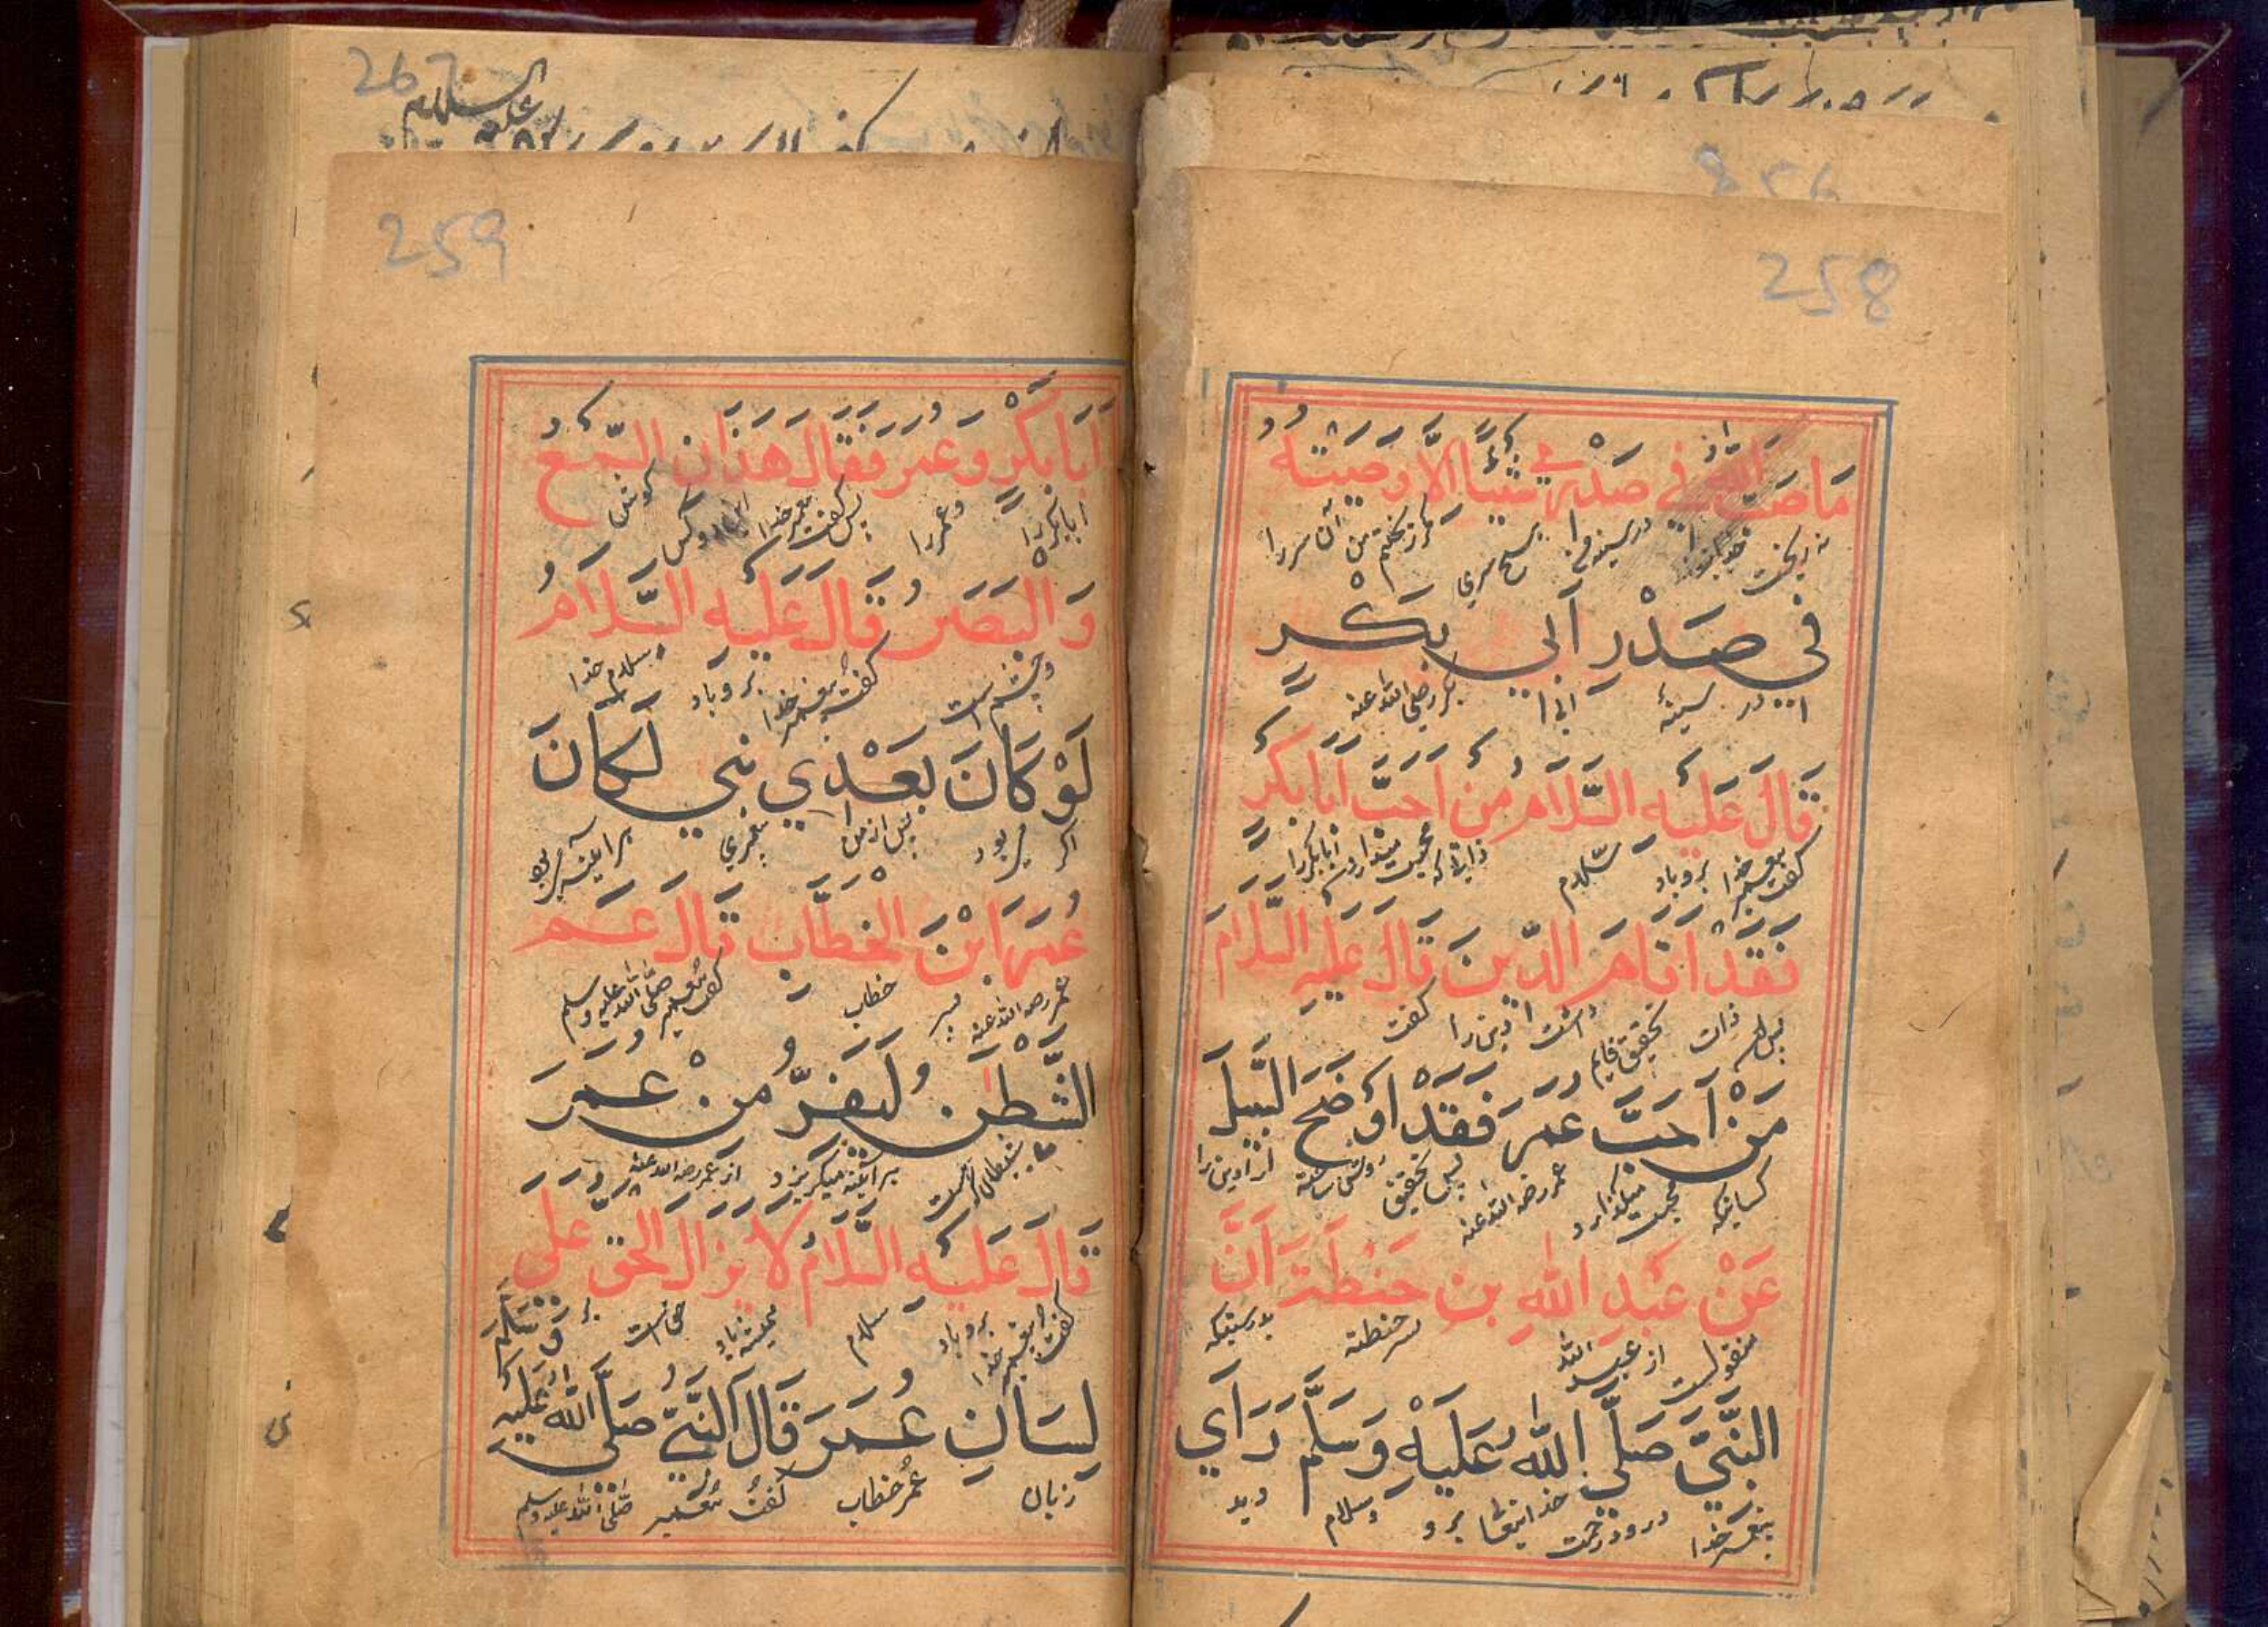 258
مَا صَبَّ اللّٰهُ فِي صَدْرِي شَيْئًا اِلَّا وَصَبَبْتُهُ
نه ریخت خدایتعالی در سینه من هیچ چیزی مگر ریختم من آن سر را
فِي صَدْرِ اَبِي بَكْرٍ
در سینهٔ ابی بکر رضی الله عنه
قَالَ عَلَيْهِ السَّلَامُ مَنْ اَحَبَّ اَبَا بَكْرٍ
گفت پیغمبر خدا برو باد سلام که محبت میدارد ابابکر را
فَقَدْ اَقَامَ الدِّينَ قَالَ عَلَيْهِ السَّلَامَ
پس ذات تحقیق قایم داشت دین را گفت
مَنْ اَحَبَّ عُمَرَ فَقَدْ اَوْضَحَ السَّبِيلَ
کسانیکه محبت میدارد عمر رضی الله عنه پس تحقیق روشن ساخته
عَنْ عَبْدِ اللّٰهِ بْنِ حَنْطَبَ اَنَّ
منقولست از عبد الله پسر حنطبه بدرستیکه
النَّبِيَّ صَلَّي اللّٰهُ عَلَيْهِ وَسَلَّمَ رَاَي
پیغمبر خدا درود رحمت خدایتعا برو وسلام دید
267
علیه السلام
259
اَبَا بَكْرٍ وَعُمَرَ فَقَالَ هَذَانِ السَّمْعُ
ابابکر را وعمر را پس گفت پیغمبر خدا گوش
وَالْبَصَرُ قَالَ عَلَيْهِ السَّلَامُ
وچشم است گفت پیغمبر خدا برو باد سلام خدا
لَوْ كَانَ بَعْدِي نَبِيٌّ لَكَانَ
اگر میبود پس از من پیغمبری هرآینه میبود
عُمَرَ ابْنَ الْخَطَّابِ قَالَ عم
عمر رضی الله عنه پسر خطاب گفت پیغمبر صلی الله علیه وسلم
الشَّيْطٰنُ لَيَفِرُّ مِنْ عُمَرَ
شیطان هرآینه میگریزد از عمر رضی الله عنه
قَالَ عَلَيْهِ السَّلَامُ لَا يَزَالُ الْحَقُّ عَلَي
گفت پیغمبر خدا برو باد سلام همیشه باد حق است بر
لِسَانِ عُمَرَ قَالَ النَّبِيُّ صَلَّي اللّٰهُ عَلَيْهِ وَسَلَّمَ
زبان عمر خطاب گفت پیغمبر صلی الله علیه وسلم